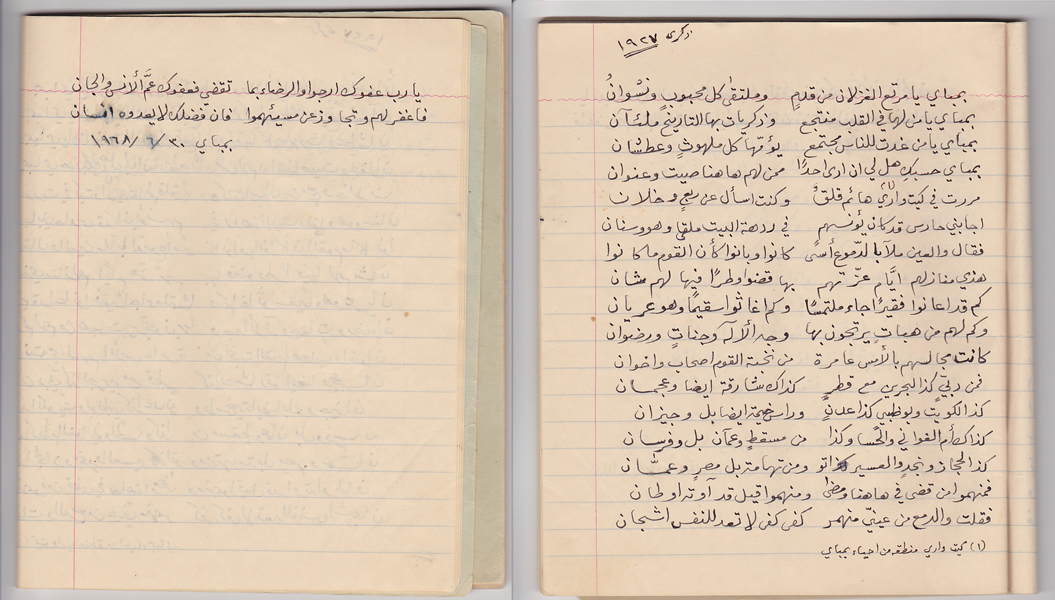 ذكرى ١٩٢٧
بمباي يا مرتع الغزلان من قدمٍ وملتقى كل محبوب ونشوانُ
بمباي يا من لها في القلب منتجع وذكريات بها التاريخ ملئان
بمباي يا من غدت للناس مجتمع يؤمّها كل ملهوثٍ وعطشان
بمباي حسبك هل لي ان ارى احدًا ممن لهم هاهنا صيت وعنوان
مررت في كيت واري (١) هائم قلقٌ وكنت اسأل عن ربعٍ وخلان
اجابني حارس قد كان يؤنسهم في ردهة البيت ملقى وهو وسنان
فقال والعين ملآ بالدموع أسىً كانوا وبانوا كأن القوم ما كانوا
هذي منازلهم ايّام عزّتهم بها قضوا وطرًا فيها لهم شان
كم قد اعانوا فقيرًا جاء ملتمسًا وكم اغاثوا سقيمًا وهو عريان
وكم لهم من هباتٍ يرتجون بها وجه الاله وجناتٍ ورضوان
كانت مجالسهم بالأمس عامرة من نخبة القوم اصحاب واخوان
فمن دبيّ كذا البحرين مع قطرٍ كذاك شارقة ايضا وعجمان
كذا الكويت وبوظبي كذا عدنٍ وراس خيمة ايضا بل وجيزان
كذاك أم الغواني والحسا وكذا من مسقطٍ وعمآن بل وفرسان
كذا الحجاز ونجدٍ والعسير اتو ومن تهامة بل مصرٍ وعمّان
فمنهموا من قضى في هاهنا ومضا ومنهموا قيل قد آوته اوطان
فقلت والدمع من عينيّ منهمر كفى كفى لا تعد للنفس اشجان
(١) كيت واري منطقه من احياء بمباي
يا رب عفوك ارجو او الرضاء بما تقضي فعفوك عمَّ الأنس والجان
فاغفر لهم وتجاوز عن مسيئهموا فان فضلك لا يعدوه انسان
بمباي ٣٠/٦/١٩٦٨